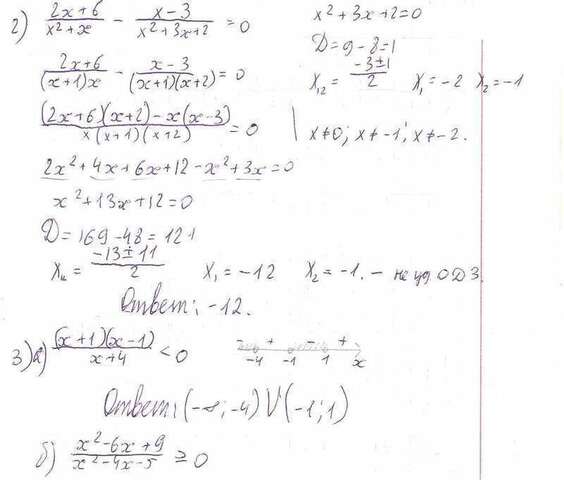 2) (2x+6)/(x²+x) − (x−3)/(x²+3x+2) = 0
x²+3x+2=0
D=9−8=1
x₁,₂ = (−3±1)/2 x₁=−2 x₂=−1
(2x+6)/((x+1)x) − (x−3)/((x+1)(x+2)) = 0
((2x+6)(x+2)−x(x−3))/(x(x+1)(x+2)) = 0 | x≠0; x≠−1; x≠−2.
2x²+4x+6x+12−x²+3x=0
x²+13x+12=0
D=169−48=121
x₁,₂ = (−13±11)/2 x₁=−12 x₂=−1. − не уд ОДЗ.
Ответ: −12.
3) а) ((x+1)(x−1))/(x+4) < 0
− + − +
−4 −1 1 x
Ответ: (−∞; −4) ∪ (−1; 1)
б) (x²−6x+9)/(x²−4x−5) ≥ 0